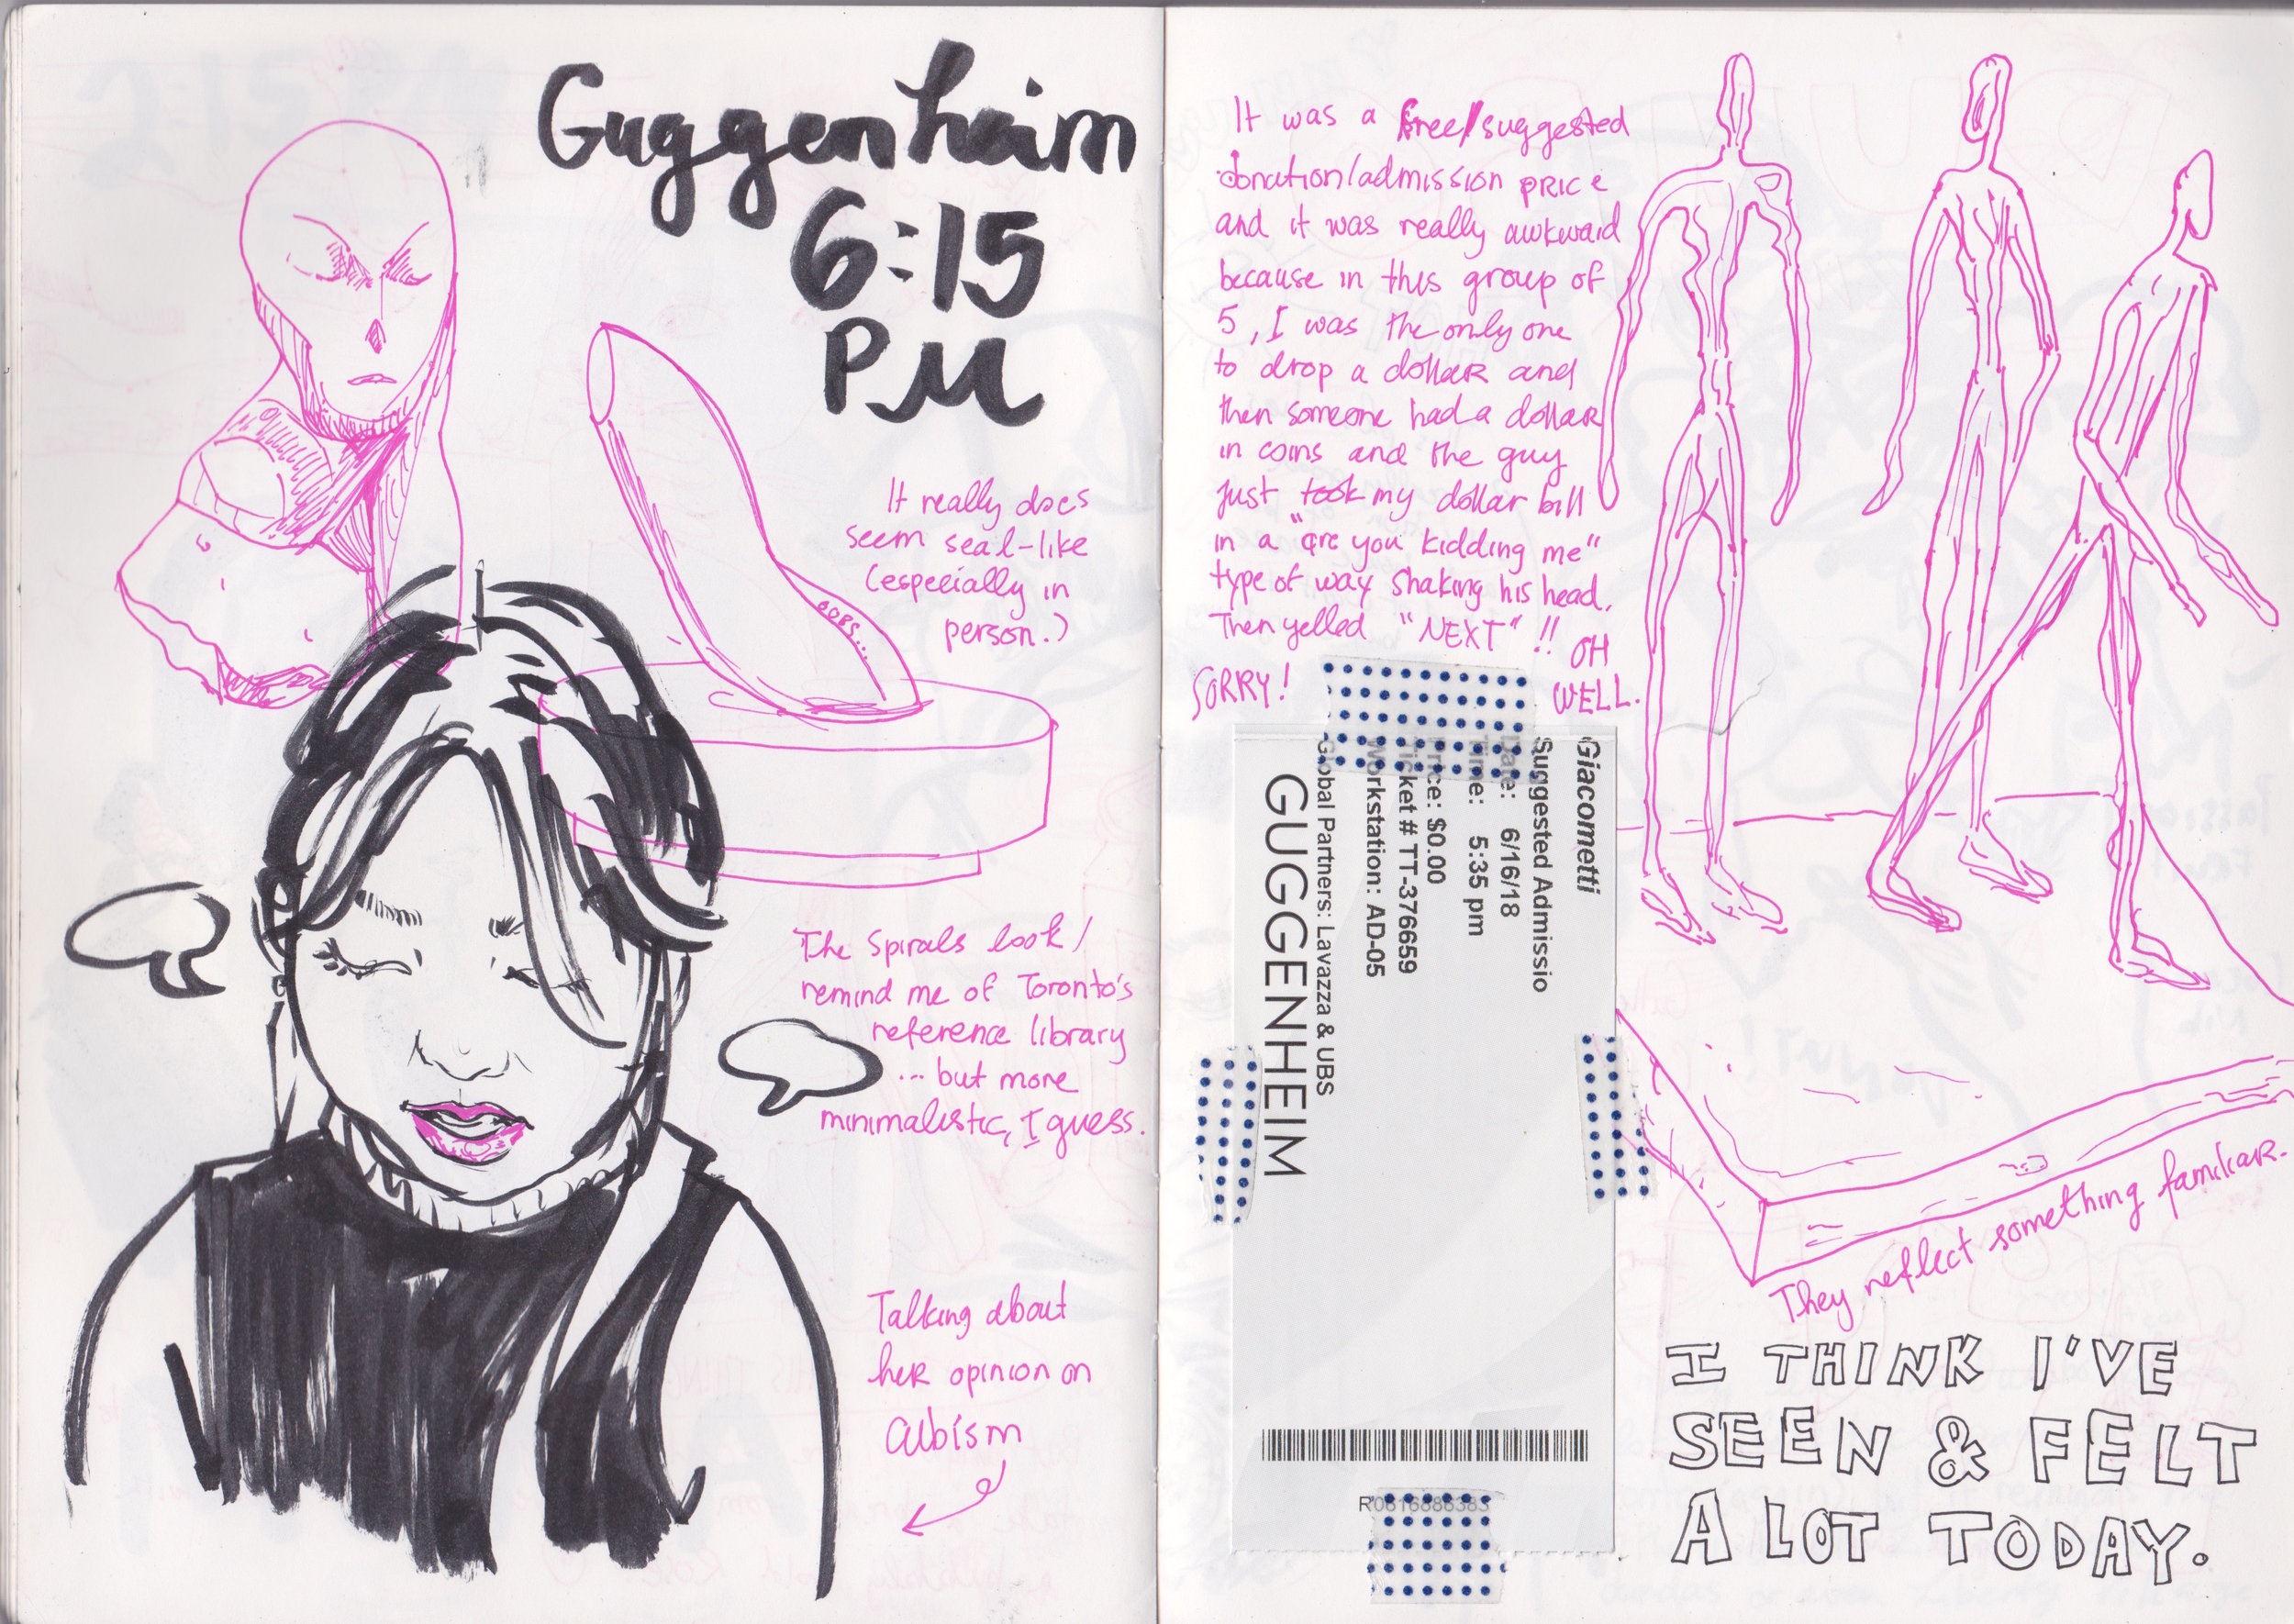 Guggenheim
6:15
PM
It really does
seem seal-like
(especially in
person.)
OOBS...
The Spirals look/
remind me of Toronto's
reference library
... but more
minimalistic, I guess.
Talking about
her opinion on
albism
It was a free/suggested
donation/admission price
and it was really awkward
because in this group of
5, I was the only one
to drop a dollar and
then someone had a dollar
in coins and the guy
just took my dollar bill
in a "are you kidding me"
type of way shaking his head.
Then yelled "NEXT"!!
OH
WELL.
SORRY!
Giacometti
Suggested Admissio
Date: 6/16/18
Time: 5:35 pm
Price: $0.00
Ticket # TT-376659
Workstation: AD-05
Global Partners: Lavazza & UBS
GUGGENHEIM
R0616886383
They reflect something familiar.
I THINK I'VE
SEEN & FELT
A LOT TODAY.